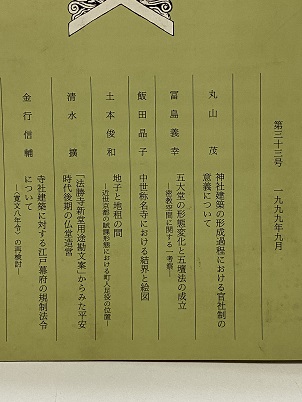 第三十三号　一九九九年九月
丸山　茂
神社建築の形成過程における官社制の
意義について
冨島義幸
五大堂の形態変化と五壇法の成立
―密教空間に関する一考察―
飯田晶子
中世称名寺における結界と絵図
土本俊和
地子と地租の間
―近世京都の賦課形態における町人足役の位置―
清水　擴
「法勝寺新堂用途勘文案」からみた平安
時代後期の仏堂造営
金行信輔
寺社建築に対する江戸幕府の規制法令
について
―「寛文八年令」の再検討―